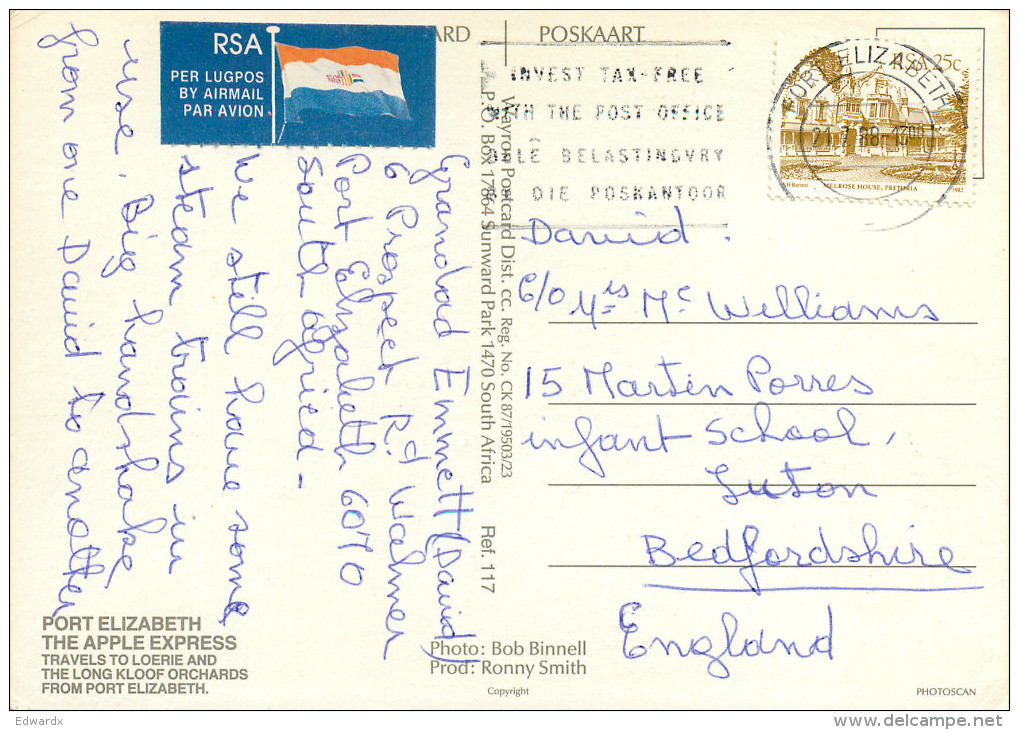 RSA
PER LUGPOS
BY AIRMAIL
PAR AVION
ARD
POSKAART
INVEST TAX-FREE
WITH THE POST OFFICE
BELASTINGVRY
DIE POSKANTOOR
PORT ELIZABETH
RSA 25c
MELROSE HOUSE, PRETORIA
1982
Grandad Emmett (David)
6 Prospect Rd Walmer
Port Elizabeth 6070
South africa
We still have some
steam trains in
use. Big handshake
from one David to another
Postcard Dist. cc. Reg. No. CK 87/19503/23
P.O. Box 17864 Sunward Park 1470 South Africa
Ref. 117
David.
c/o Mrs Mc Williams
15 Martin Porres
infant School,
Luton
Bedfordshire
England
PORT ELIZABETH
THE APPLE EXPRESS
TRAVELS TO LOERIE AND
THE LONG KLOOF ORCHARDS
FROM PORT ELIZABETH.
Photo: Bob Binnell
Prod: Ronny Smith
Copyright
PHOTOSCAN
Edwardx
delcampe.net